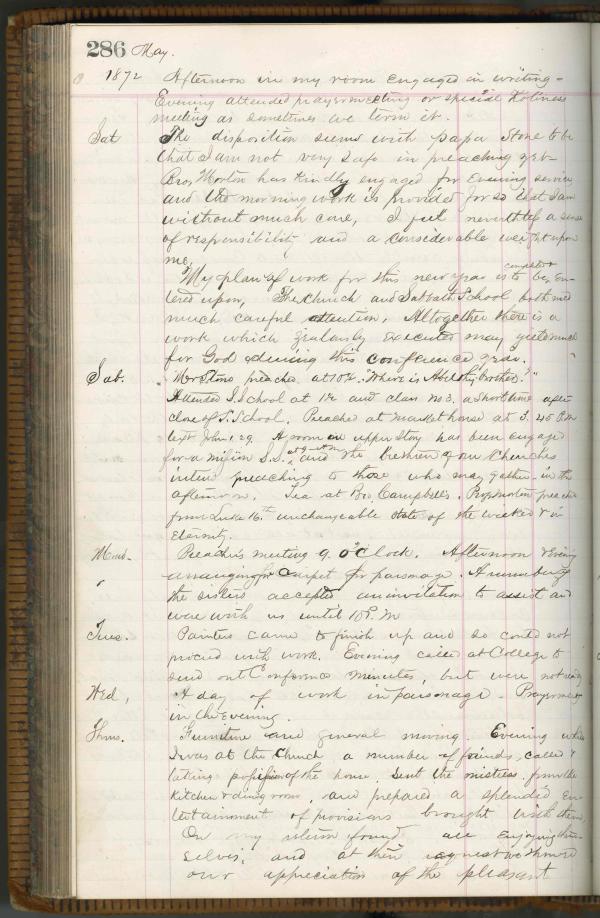 286 May.
1872 Afternoon in my room engaged in writing -
Evening attended prayermeeting or special Holiness
meeting as sometimes we term it.
Sat The disposition seems with papa Stone to be
that I am not very safe in preaching yet -
Bro. Morton has kindly engaged for Evening service
and the morning work is provided for so that I am
without much care, I feel a sense
of responsibility and a considerable weight upon
me,
My plan of work for this new year is to be
completed
tered upon, The Church and Sabbath School both need
much careful attention, Altogether there is a
work which zealously executed may yield much
for God during this conference year.
Sab. Mr Stone preached at 10½. "Where is Abel thy brother?"
Attended S. School at 1½ and class no 3. a short time after
close of S. School. Preached at market house at 3.45 P.M
text John 1.29 A room on upper story has been engaged
for a mission S.S. at 9 A.M and the brethren of our Churches
intend preaching to those who may gather in the
afternoon. Tea at Bro. Campbells. Bro. Morton preached
from Luke 16th unchangeable state of the wicked & in
Eternity.
Mond. Preachers meeting 9. oClock. Afternoon & Evening
arranging for Carpet for parsonage. A number of
the sisters accepted an invitation to assist and
were with us until 10 P.M
Tues. Painters came to finish up and so could not
proceed with work. Evening called at College to
send out Conference minutes, but were not ready
Wed, A day of work in parsonage - Prayermeeting
in the evening.
Thurs. Furniture and general moving. Evening while
I was at the Church a number of friends called &
taking possession of the house, sent the mistress from the
kitchen & dining room, and prepared a splended En-
tertainment of provisions brought with them
On my return found all enjoying them-
selves, and at their request we showed
our appreciation of the pleasant